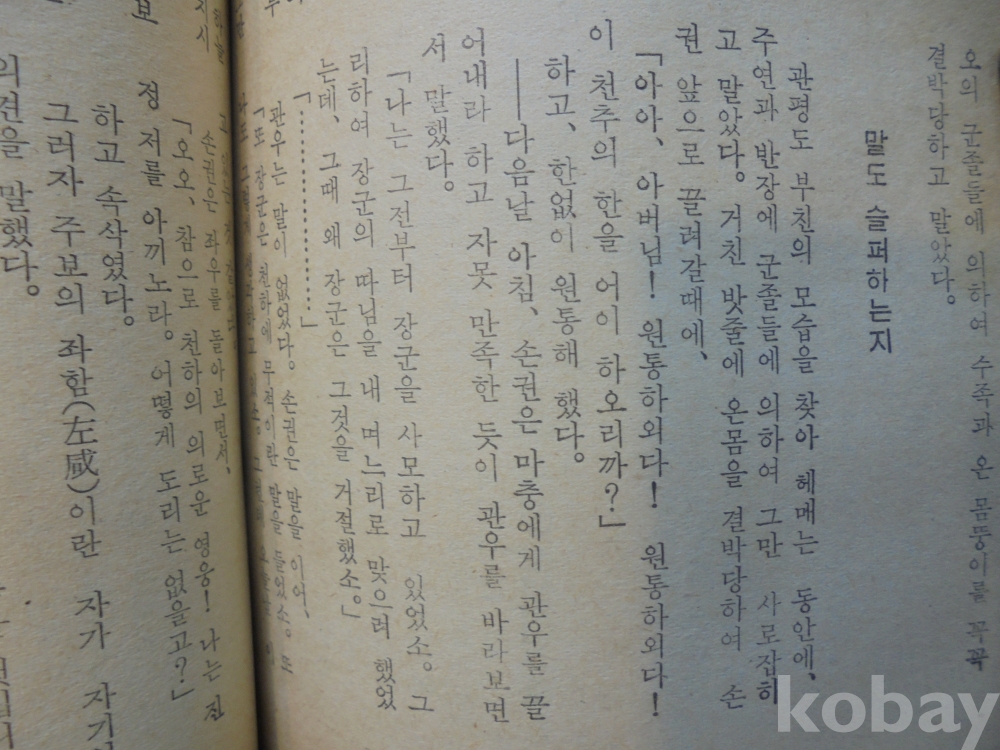 오의 군졸들에 의하여 수족과 온 몸뚱이를 꼭꼭
결박당하고 말았다.
말도 슬퍼하는지
관평도 부친의 모습을 찾아 헤매는 동안에,
주연과 반장에 군졸들에 의하여 그만 사로잡히
고 말았다. 거친 밧줄에 온몸을 결박당하여 손
권 앞으로 끌려갈때에,
「아아, 아버님! 원통하외다! 원통하외다!
이 천추의 한을 어이 하오리까?」
하고, 한없이 원통해 했다.
──다음날 아침, 손권은 마충에게 관우를 끌
어내라 하고 자못 만족한 듯이 관우를 바라보면
서 말했다.
「나는 그전부터 장군을 사모하고 있었소. 그
리하여 장군의 따님을 내 며느리로 맞으려 했었
는데, 그때 왜 장군은 그것을 거절했소.」
「…………」
관우는 말이 없었다. 손권은 말을 이어,
「또 장군은 천하에 무적이란 말을 들었소. 또
손권은 좌우를 돌아보면서,
「오오, 참으로 천하의 의로운 영웅! 나는 진
정 저를 아끼노라. 어떻게 도리는 없을고?」
하고 속삭였다.
그러자 주보의 좌함(左咸)이란 자가 자기
의견을 말했다.
kobay